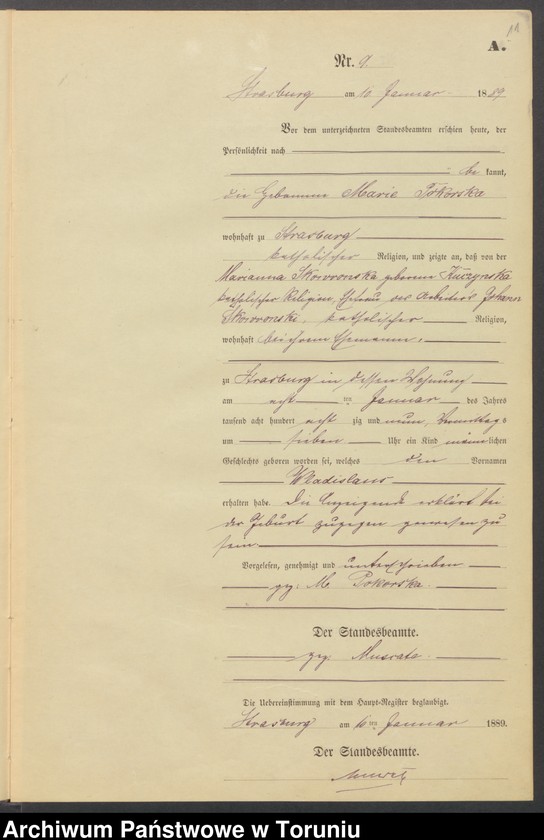 11
A.
Nr. 9.
Strasburg am 10 Januar 1889
Vor dem unterzeichneten Standesbeamten erschien heute, der
Persönlichkeit nach
be kannt,
die Hebamme Marie Pokorska
wohnhaft zu Strasburg
katholischer Religion, und zeigte an, daß von der
Marianna Skowronska geborenen Kuczynska
katholischer Religion, Ehefrau des Arbeiters Johann
Skowronski, katholischer Religion,
wohnhaft bei ihrem Ehemanne,
zu Strasburg in dessen Wohnung
am acht ten Januar des Jahres
tausend acht hundert acht zig und neun, Vormittags
um sieben Uhr ein Kind männlichen
Geschlechts geboren worden sei, welches den Vornamen
Wladislaus
erhalten habe. Die Anzeigende erklärt bei
der Geburt zugegen gewesen zu
sein.
Vorgelesen, genehmigt und unterschrieben
gez: M. Pokorska.
Der Standesbeamte.
gez.
Die Uebereinstimmung mit dem Haupt-Register beglaubigt.
Strasburg am 10 ten Januar 1889.
Der Standesbeamte.
Archiwum Państwowe w Toruniu